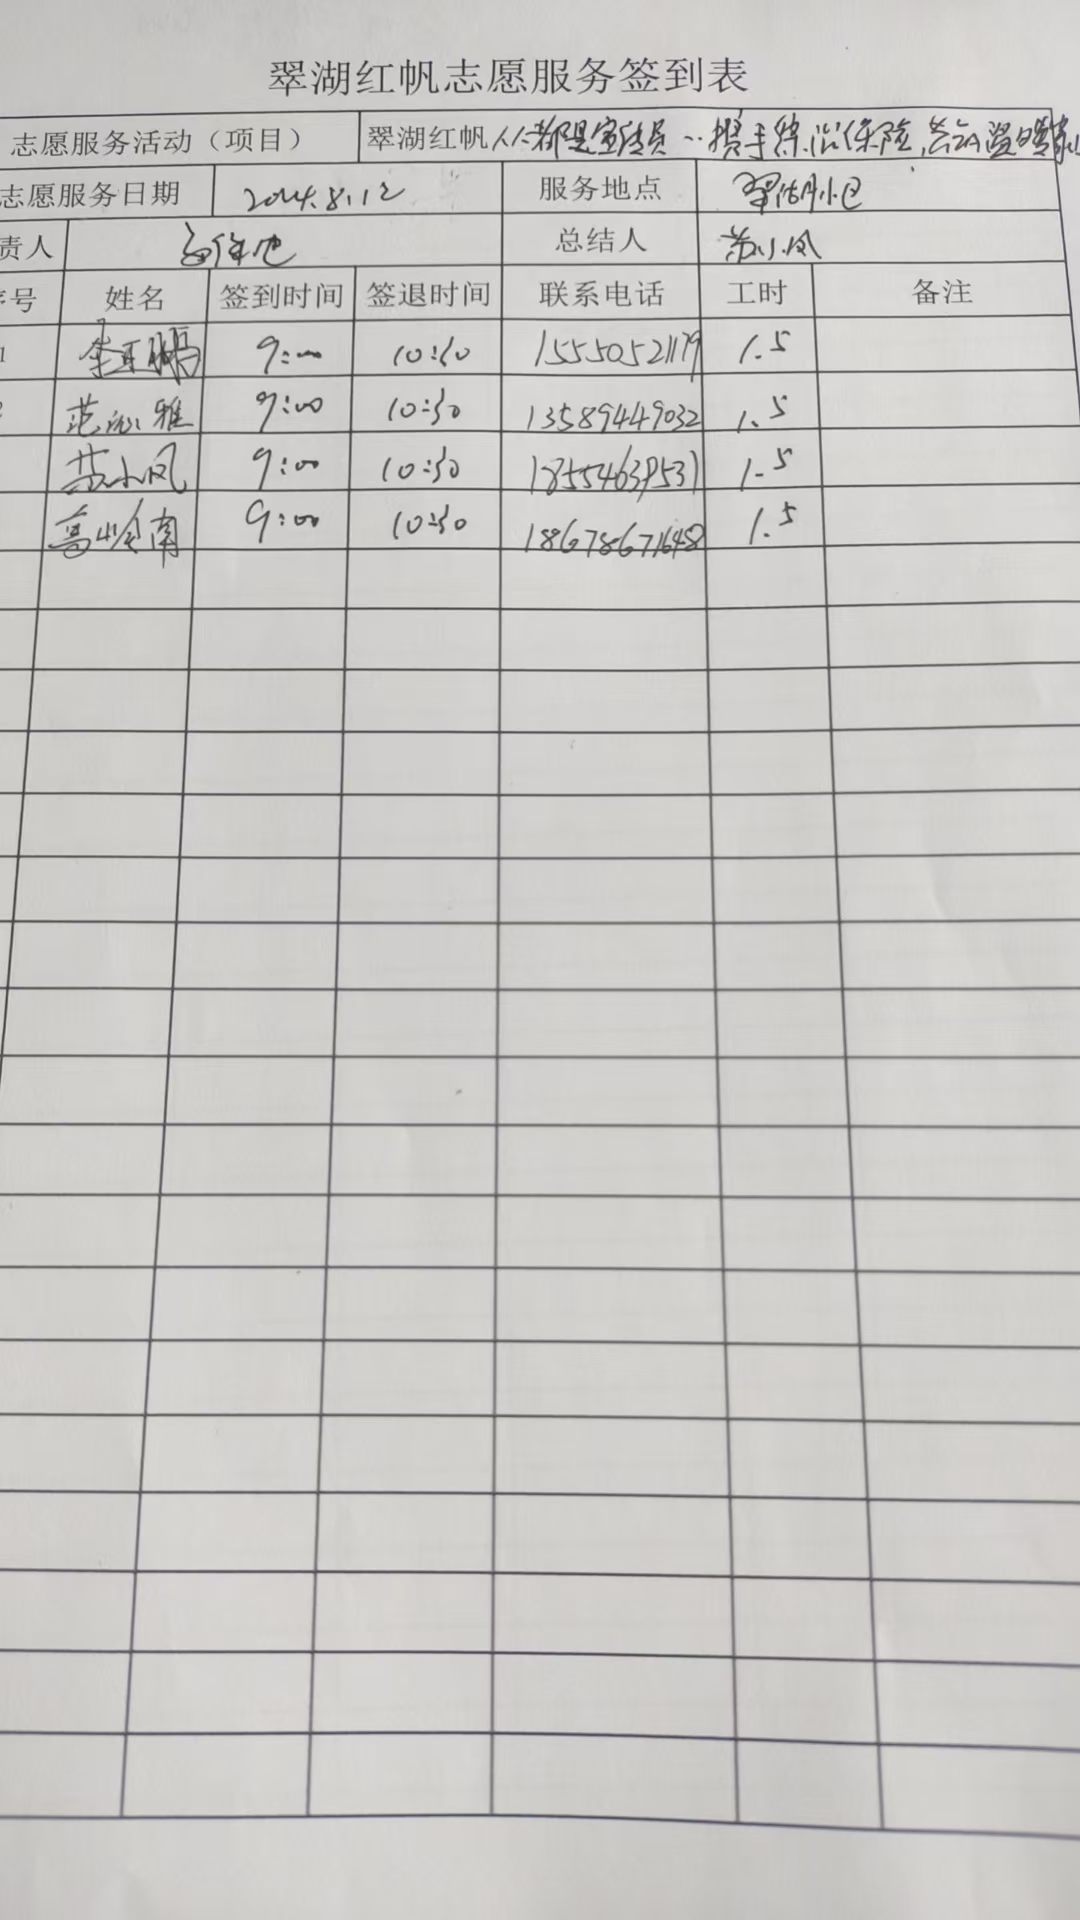 翠湖红帆志愿服务签到表
志愿服务活动（项目） 翠湖红帆人人都是宣传员 携手 保险
志愿服务日期 2024.8.12 服务地点 翠湖小区
责人 总结人 苏小凤
序号 姓名 签到时间 签退时间 联系电话 工时 备注
1 9:00 10:30 15550521179 1.5
2 范 雅 9:00 10:30 13589449032 1.5
苏小凤 9:00 10:30 18554639531 1.5
高岭南 9:00 10:30 18678671648 1.5